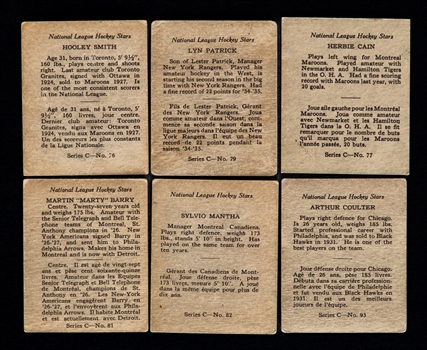 National League Hockey Stars
HOOLEY SMITH
Age 31, born in Toronto, 5' 9½",
160 lbs., plays centre and shoots
right. Last amateur club Toronto
Granites, signed with Ottawa in
1924, sold to Maroons 1927. Is
one of the most consistent scorers
in the National League.
Age de 31 ans, né à Toronto, 5'
9½", 160 livres, joue centre.
Dernier club amateur: Toronto
Granites, signa avec Ottawa en
1924, vendu aux Maroons en 1927.
Un des scoreurs les plus constant
de la Ligue Nationale.
Series C—No. 76
National League Hockey Stars
LYN PATRICK
Son of Lester Patrick, Manager
New York Rangers. Played his
amateur hockey in the West, is
starting his second season in the big
time with New York Rangers. Had
a fine record of 22 points for '34-'35.
Fils de Lester Patrick, Gérant
des New York Rangers. Joua
comme amateur dans l'Ouest, com-
mence sa seconde saison dans la
ligue majeure dans l'équipe des New
York Rangers. Il eut un beau
record de 22 points pendant la
saison '34-'35.
Series C—No. 79
National League Hockey Stars
HERBIE CAIN
Plays left wing for Montreal
Maroons. Played amateur with
Newmarket and Hamilton Tigers
in the O. H. A. Had a fine scoring
record with Maroons last year, with
20 goals.
Joue aile gauche pour les Montréal
Maroons. Joua comme amateur
avec Newmarket et les Hamilton
Tigers dans la O. H. A. Il se fit
remarquer pour le nombre de buts
qu'il marqua pour les Maroons
l'année passée, 20 buts.
Series C—No. 77
National League Hockey Stars
MARTIN "MARTY" BARRY
Centre. Twenty-seven years old
and weighs 175 lbs. Amateur with the
Senior Telegraph and Bell Tele-
phone teams of Montreal, St.
Anthony champions in '26. New
York Americans bought Barry in
'26-'27, and sent him to Phila-
delphia Arrows. Makes his home in
Montreal and is now with Detroit.
Centre. Il est agé de vingt-sept
ans et pèse cent soixante-quinze
livres. Amateur dans les Equipes
Senior Telegraph et Bell Téléphone
de Montréal, champions de St.
Anthony en '26. Les New-York
Americans engagèrent Barry, en
'26-'27, et l'envoyèrent aux Phila-
delphia Arrows. Il habite Montréal
et est actuellement avec Detroit.
Series C—No. 81
National League Hockey Stars
SYLVIO MANTHA
Manager Montreal Canadiens.
Plays right defence, weighs 173
lbs., stands 5' 10" in height. Has
played on the same team for over
ten years.
Gérant des Canadiens de Mont-
réal. Joue défense droite, pèse
173 livres, mesure 5' 10". A joué
dans la même équipe pour plus de
dix ans.
Series C—No. 82
National League Hockey Stars
ARTHUR COULTER
Plays right defence for Chicago.
Is 26 years old, weighs 185 lbs.
Started professional career with
Philadelphia, and was sold to Black
Hawks in 1931. He is one of the
best players on the team.
Joue défense droite pour Chicago.
Agé de 26 ans, pèse 185 livres.
Débuta dans sa carrière profession-
nelle avec l'équipe de Philadelphie
et fut vendu aux Black Hawks en
1931. Il est un des meilleurs
joueurs de l'équipe.
Series C—No. 93